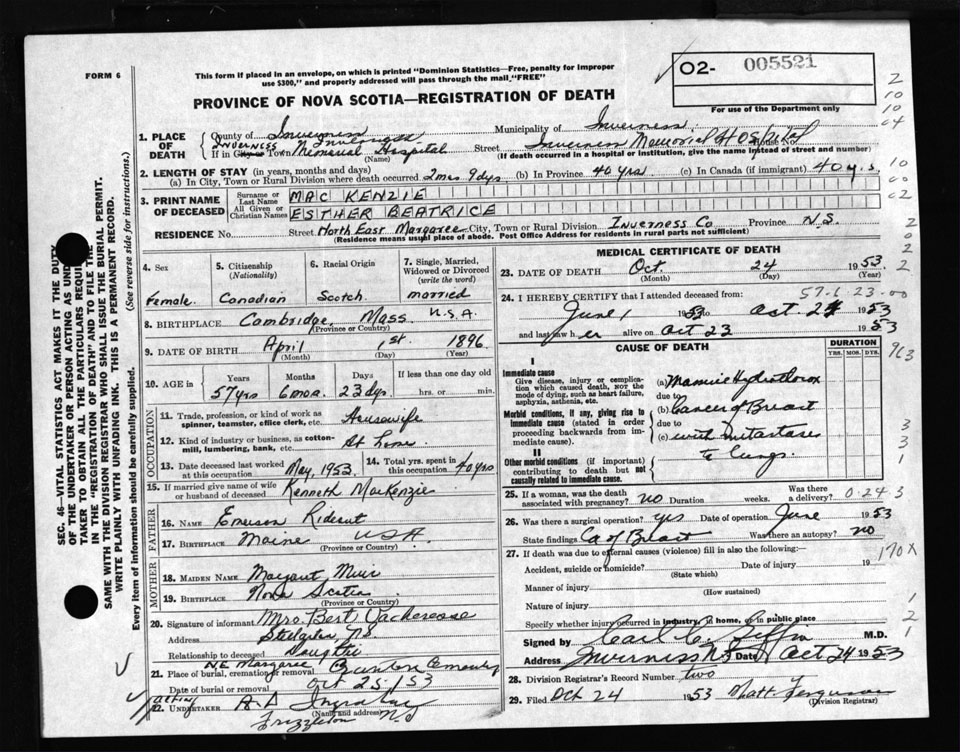 FORM 6
This form if placed in an envelope, on which is printed "Dominion Statistics—Free, penalty for improper
use $300," and properly addressed will pass through the mail "FREE"
PROVINCE OF NOVA SCOTIA—REGISTRATION OF DEATH
O2- 005521
For use of the Department only
2
10
10
04
1. PLACE OF DEATH County of Inverness Municipality of Inverness
INVERNESS
If in City or Town Memorial Hospital (Name) Street Inverness Memorial Hospital House No.
(If death occurred in a hospital or institution, give the name instead of street and number)
2. LENGTH OF STAY (in years, months and days)
(a) In City, Town or Rural Division where death occurred 2mos 9dys (b) In Province 40 yrs (c) In Canada (if immigrant) 40 yrs.
10
00
02
3. PRINT NAME OF DECEASED Surname or Last Name MAC KENZIE
All Given or Christian Names ESTHER BEATRICE
RESIDENCE No. Street North East Margaree City, Town or Rural Division Inverness Co Province N.S.
(Residence means usual place of abode. Post Office Address for residents in rural parts not sufficient)
2
0
2
2
4. Sex Female
5. Citizenship (Nationality) Canadian
6. Racial Origin Scotch
7. Single, Married, Widowed or Divorced (write the word) married
8. BIRTHPLACE Cambridge, Mass U.S.A.
(Province or Country)
9. DATE OF BIRTH April 1st 1896
(Month) (Day) (Year)
10. AGE in Years Months Days If less than one day old
57 yrs 6 mos. 23 dys. hrs. or min.
OCCUPATION
11. Trade, profession, or kind of work as spinner, teamster, office clerk, etc. Housewife
12. Kind of industry or business, as cotton-mill, lumbering, bank, etc. At home
13. Date deceased last worked at this occupation May, 1953
14. Total yrs. spent in this occupation 40 yrs
15. If married give name of wife or husband of deceased Kenneth MacKenzie
FATHER
16. NAME Emerson Rideout
17. BIRTHPLACE Maine USA
(Province or Country)
MOTHER
18. MAIDEN NAME Margaret Muir
19. BIRTHPLACE Nova Scotia
(Province or Country)
20. Signature of informant Mrs. Bert
Address NS
Relationship to deceased Daughter
21. Place of burial, cremation or removal N E Margaree Cemetery
Date of burial or removal Oct 25/53
Acting
22. UNDERTAKER A. D
(Name and address)
Frizzleton NS
MEDICAL CERTIFICATE OF DEATH
23. DATE OF DEATH Oct. 24 1953
(Month) (Day) (Year)
24. I HEREBY CERTIFY that I attended deceased from: 57.6.23.00
June 1 1953 to Oct. 24 1953
and last saw her alive on Oct 23 1953
CAUSE OF DEATH
DURATION
YRS. MOS. DYS.
963
I
Immediate cause
Give disease, injury or complication which caused death, not the mode of dying, such as heart failure, asphyxia, asthenia, etc.
(a) Massive Hydrothorax
due to
Morbid conditions, if any, giving rise to immediate cause (stated in order proceeding backwards from immediate cause).
(b) Cancer of Breast
due to
(c) with metastases
to lungs.
II
Other morbid conditions (if important) contributing to death but not causally related to immediate cause.
3
3
1
25. If a woman, was the death associated with pregnancy? no Duration weeks. Was there a delivery? 0.24 3
26. Was there a surgical operation? yes Date of operation June 1953
State findings Ca of Breast Was there an autopsy? no
27. If death was due to external causes (violence) fill in also the following:—
170X
Accident, suicide or homicide? Date of injury 19
(State which)
Manner of injury
(How sustained)
Nature of injury
Specify whether injury occurred in industry, in home, or in public place
1
2
1
Signed by Carl C. M.D.
Address Inverness NS Date Oct 24 1953
28. Division Registrar's Record Number two
29. Filed Oct 24 1953 Matt. Ferguson
(Division Registrar)
SEC. 46—VITAL STATISTICS ACT MAKES IT THE DUTY
OF THE UNDERTAKER OR PERSON ACTING AS UNDER
TAKER TO OBTAIN ALL THE PARTICULARS REQUI
IN THE "REGISTRATION OF DEATH" AND TO FILE THE
SAME WITH THE DIVISION REGISTRAR WHO SHALL ISSUE THE BURIAL PERMIT.
WRITE PLAINLY WITH UNFADING INK. THIS IS A PERMANENT RECORD.
Every item of information should be carefully supplied. (See reverse side for instructions.)